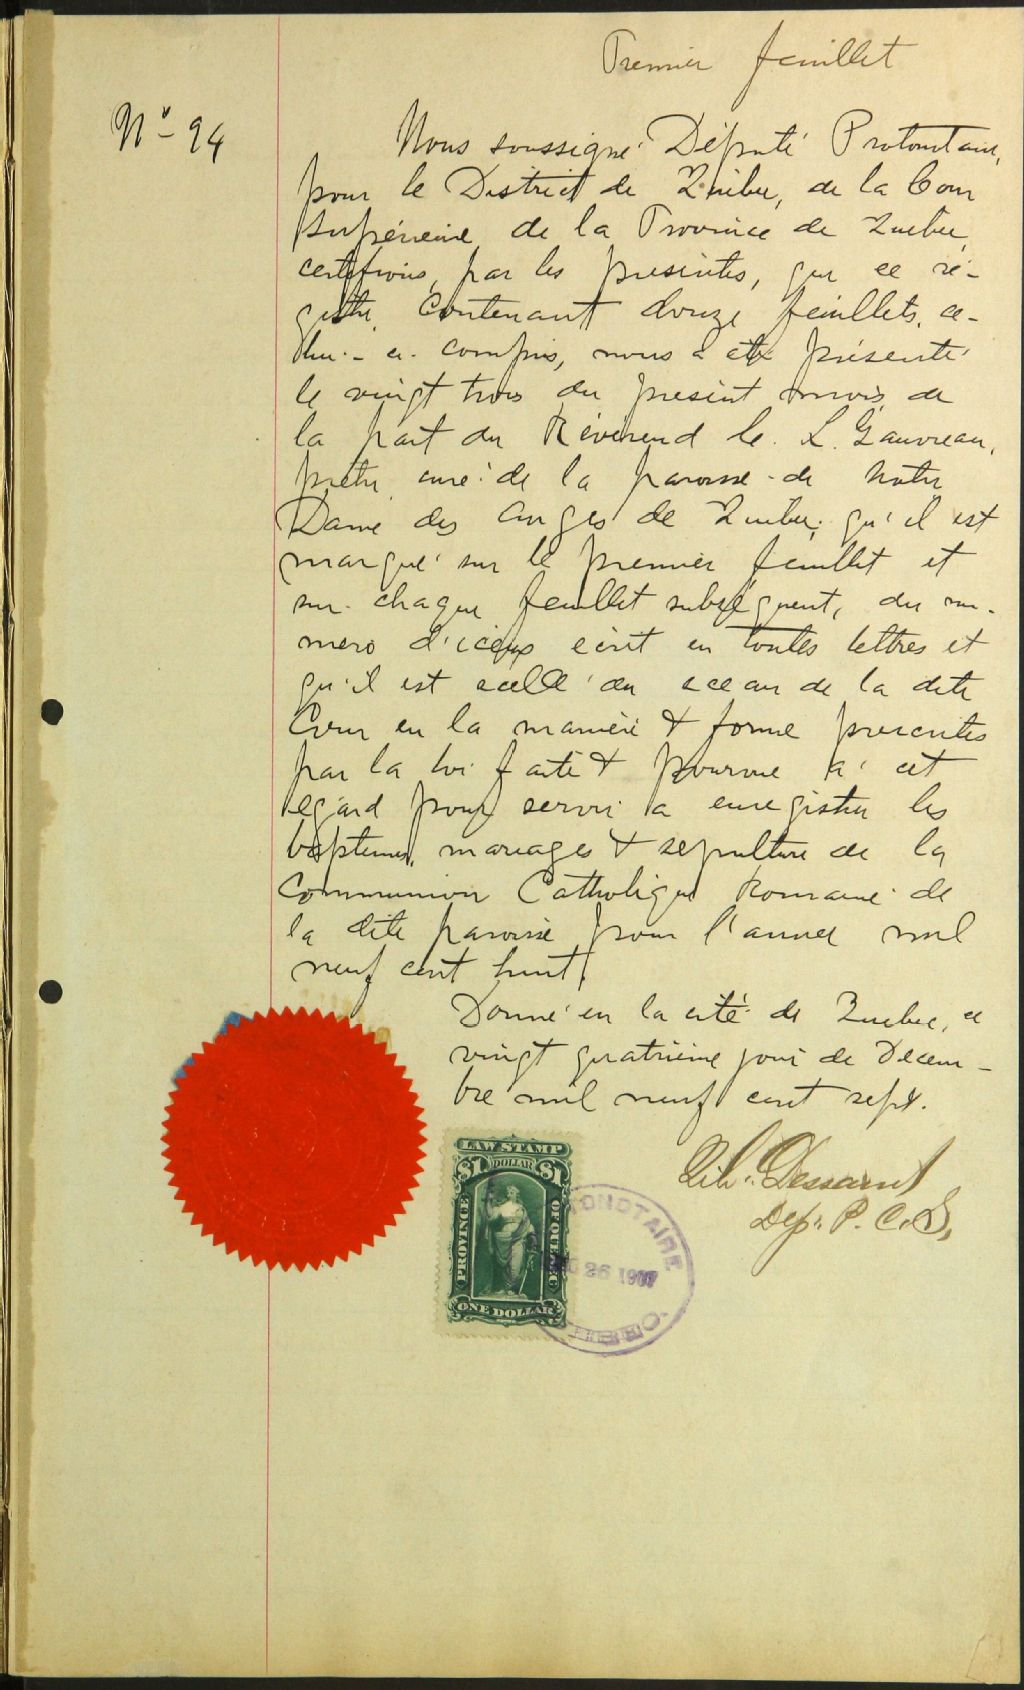 Premier feuillet
No 94
Nous soussigné Député Protonotaire,
pour le District de Québec, de la Cour
Supérieure, de la Province de Québec,
certifions, par les présentes, que ce re-
gistre, contenant douze feuillets, ce-
lui-ci compris, nous a été présenté
le vingt trois du présent mois, de
la part du Révérend C. L. Gauvreau,
prêtre, curé de la paroisse de Notre
Dame des Anges de Québec, qu'il est
marqué sur le premier feuillet et
sur chaque feuillet subséquent, du nu-
mero d'iceux écrit en toutes lettres et
qu'il est scellé du sceau de la dite
Cour en la manière & forme prescrites
par la loi faite & pourvue à cet
égard pour servir à enregistrer les
baptemes, mariages & sepulture de la
Communion Catholique Romaine de
la dite paroisse pour l'année mil
neuf cent huit.
Donné en la cité de Québec, ce
vingt quatrième jour de Décem-
bre mil neuf cent sept.
Dessaint
Dep. P. C. S.
LAW STAMP
$1 DOLLAR $1
PROVINCE OF QUEBEC
ONE DOLLAR
26 1907